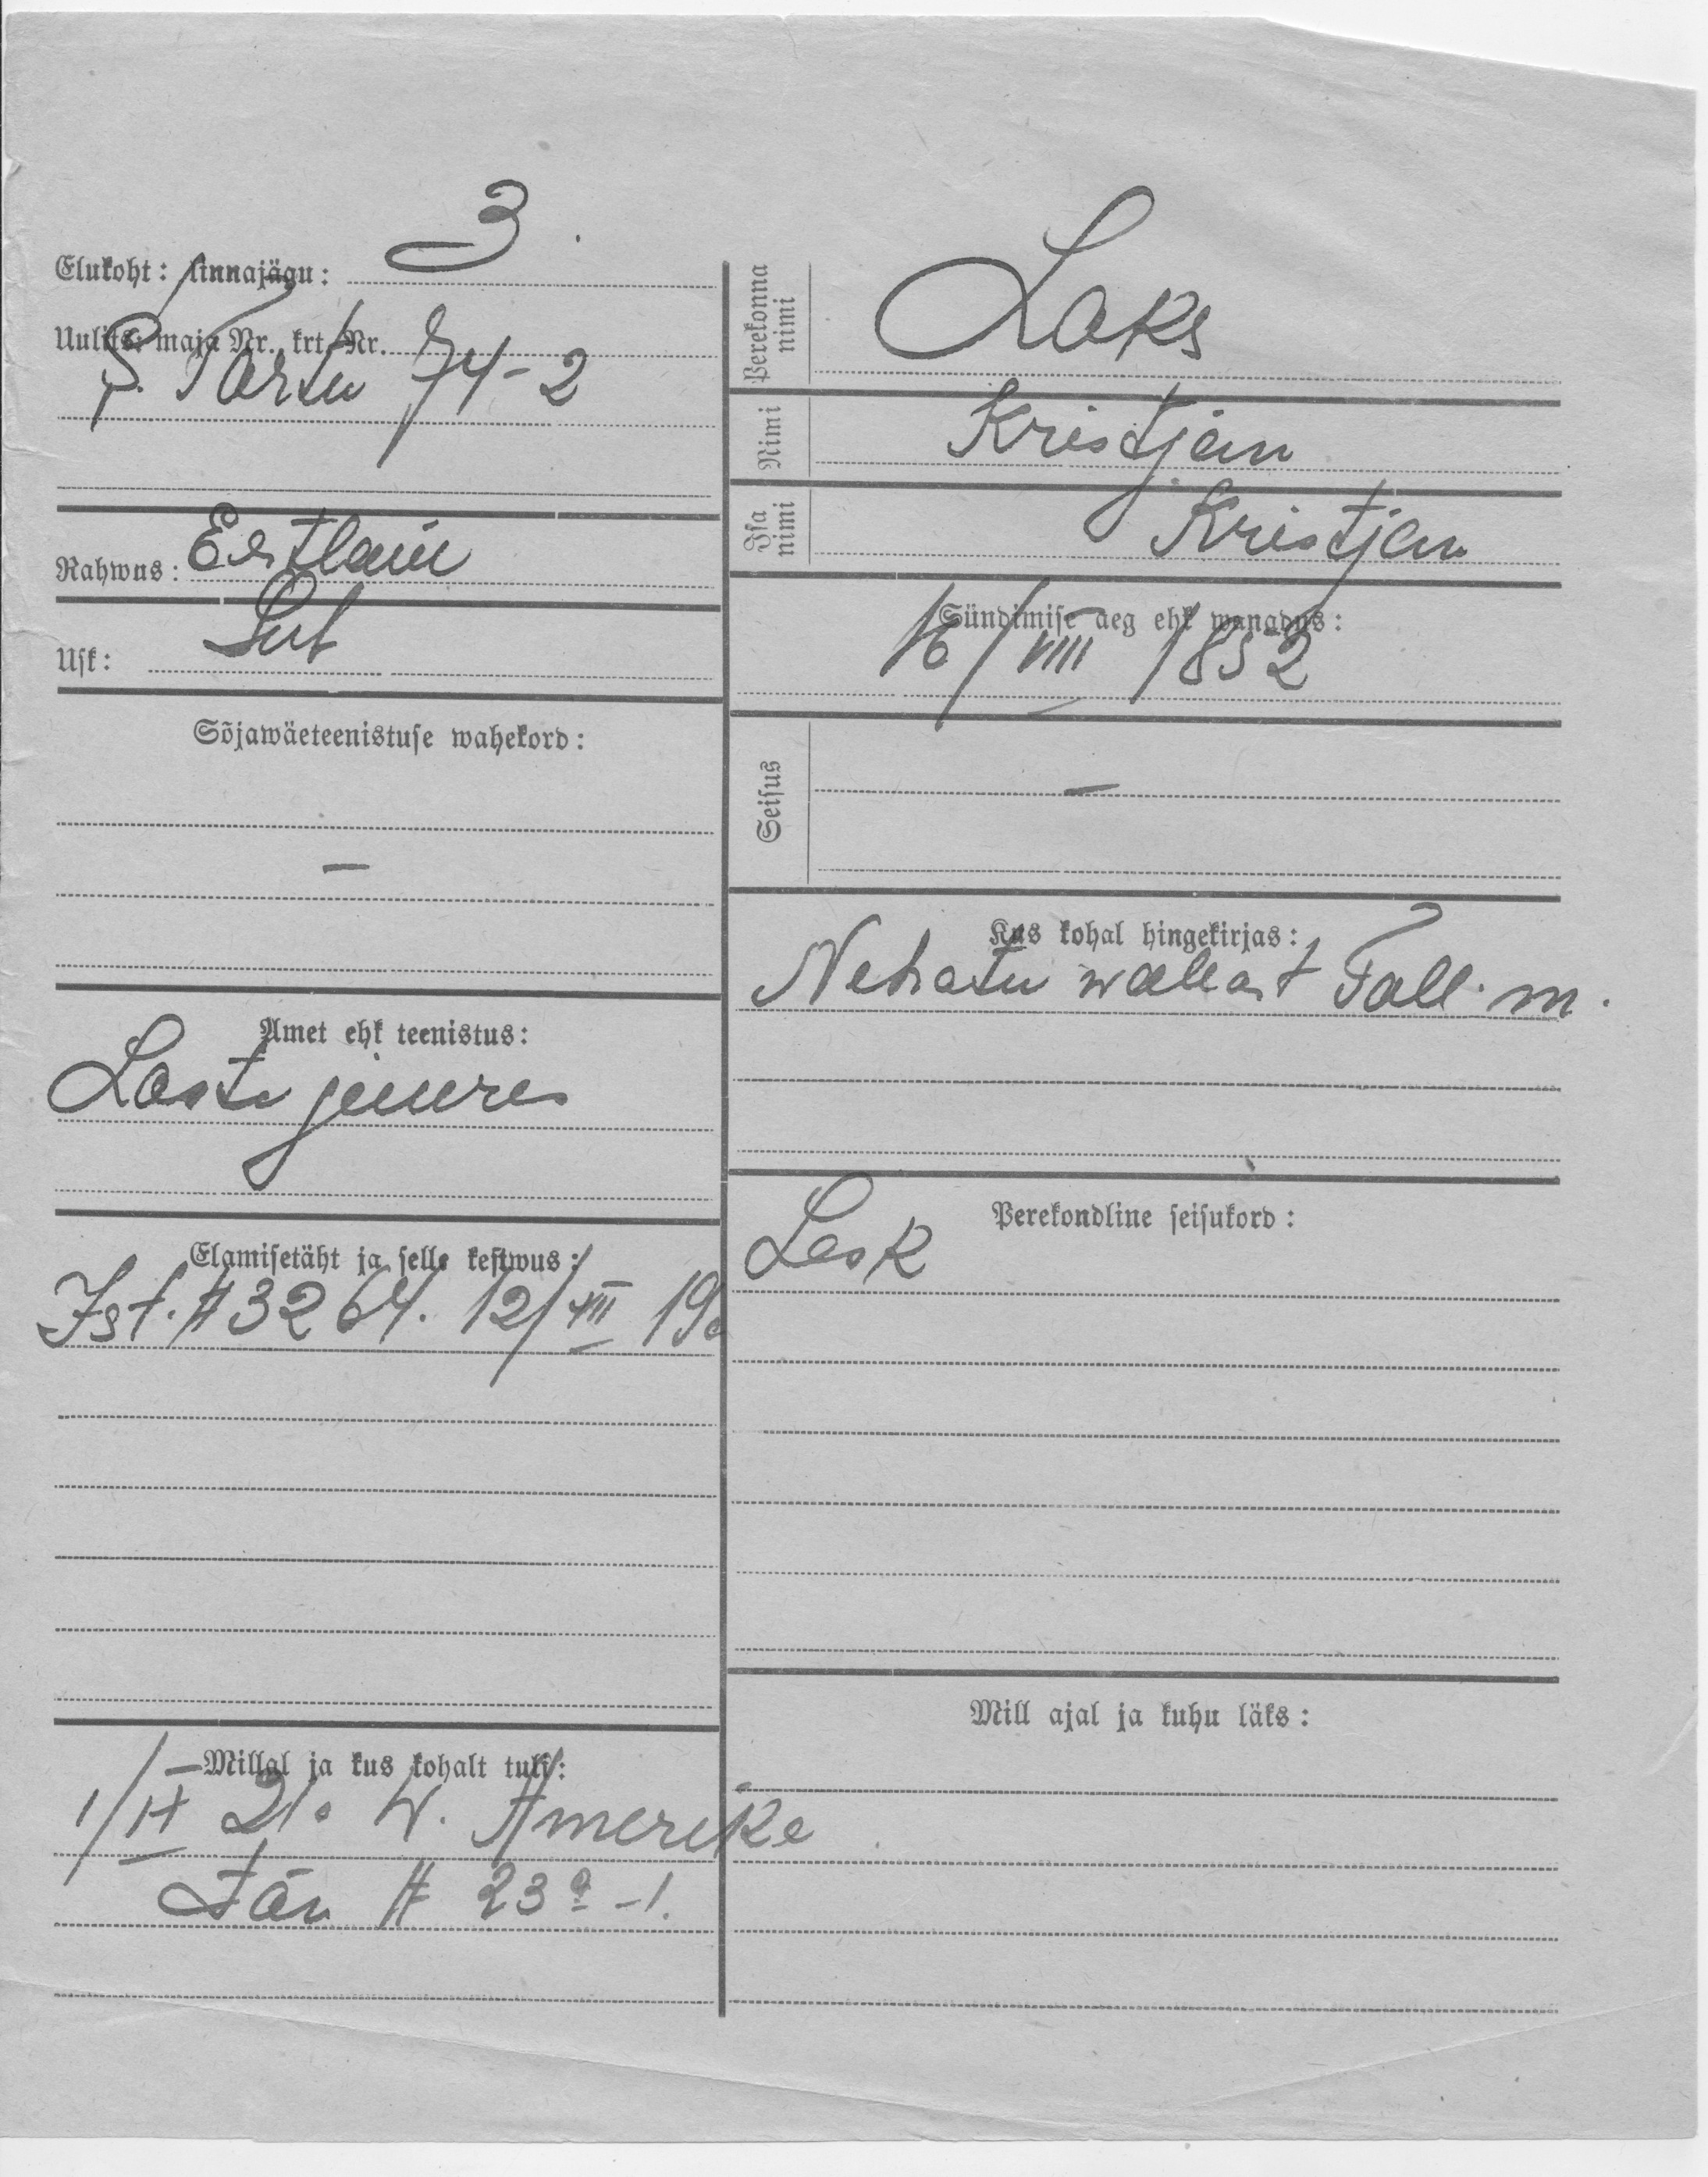 Elukoht: linnajägu: 3.
Uulits: maja Nr. krt. Nr.
S. Tartu 74-2
Rahwus: Eestlain
Usk: Lut
Sõjawäeteenistuse wahekord:
—
Amet ehk teenistus:
Laste juures
Elamisetäht ja selle kestwus:
Ist. # 3264. 12/XII 19
Millal ja kus kohalt tuli:
1/IX 21. W. Amerike
tän # 23a -1.
Perekonna nimi Laks
Nimi Kristjan
Isa nimi Kristjan
Sündimise aeg ehk wanadus:
16/VIII 1852
Seisus —
Kus kohal hingekirjas:
Nehatu wallast Tall. m.
Perekondline seisukord:
Lesk
Mill ajal ja kuhu läks: